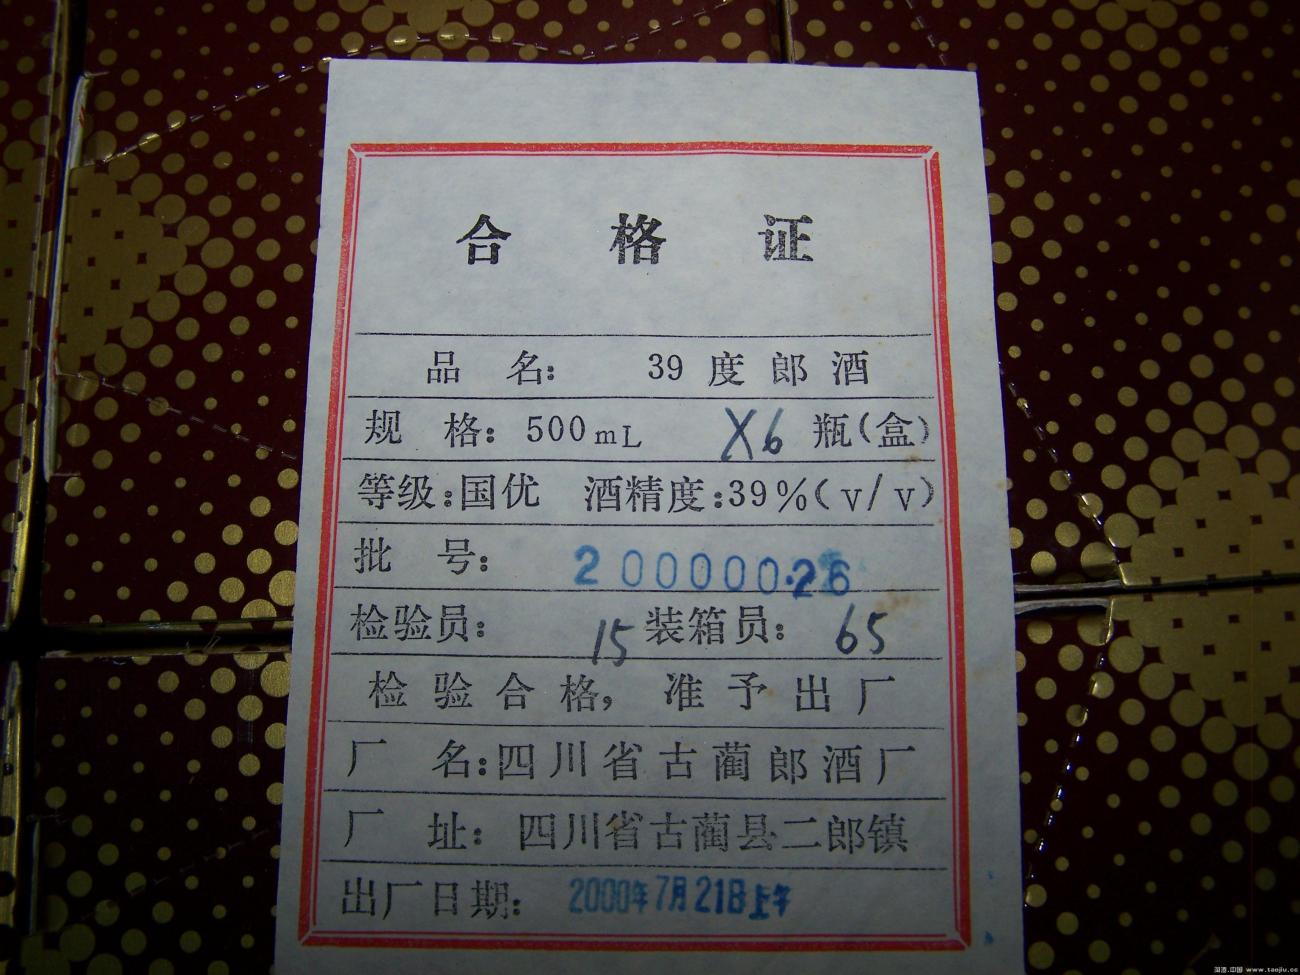 合格证
品名: 39度郎酒
规格: 500mL X6 瓶(盒)
等级:国优 酒精度:39%(v/v)
批号: 20000026
检验员: 15 装箱员: 65
检验合格，准予出厂
厂名:四川省古蔺郎酒厂
厂址: 四川省古蔺县二郎镇
出厂日期: 2000年7月21日上午
www.taojiu.cc